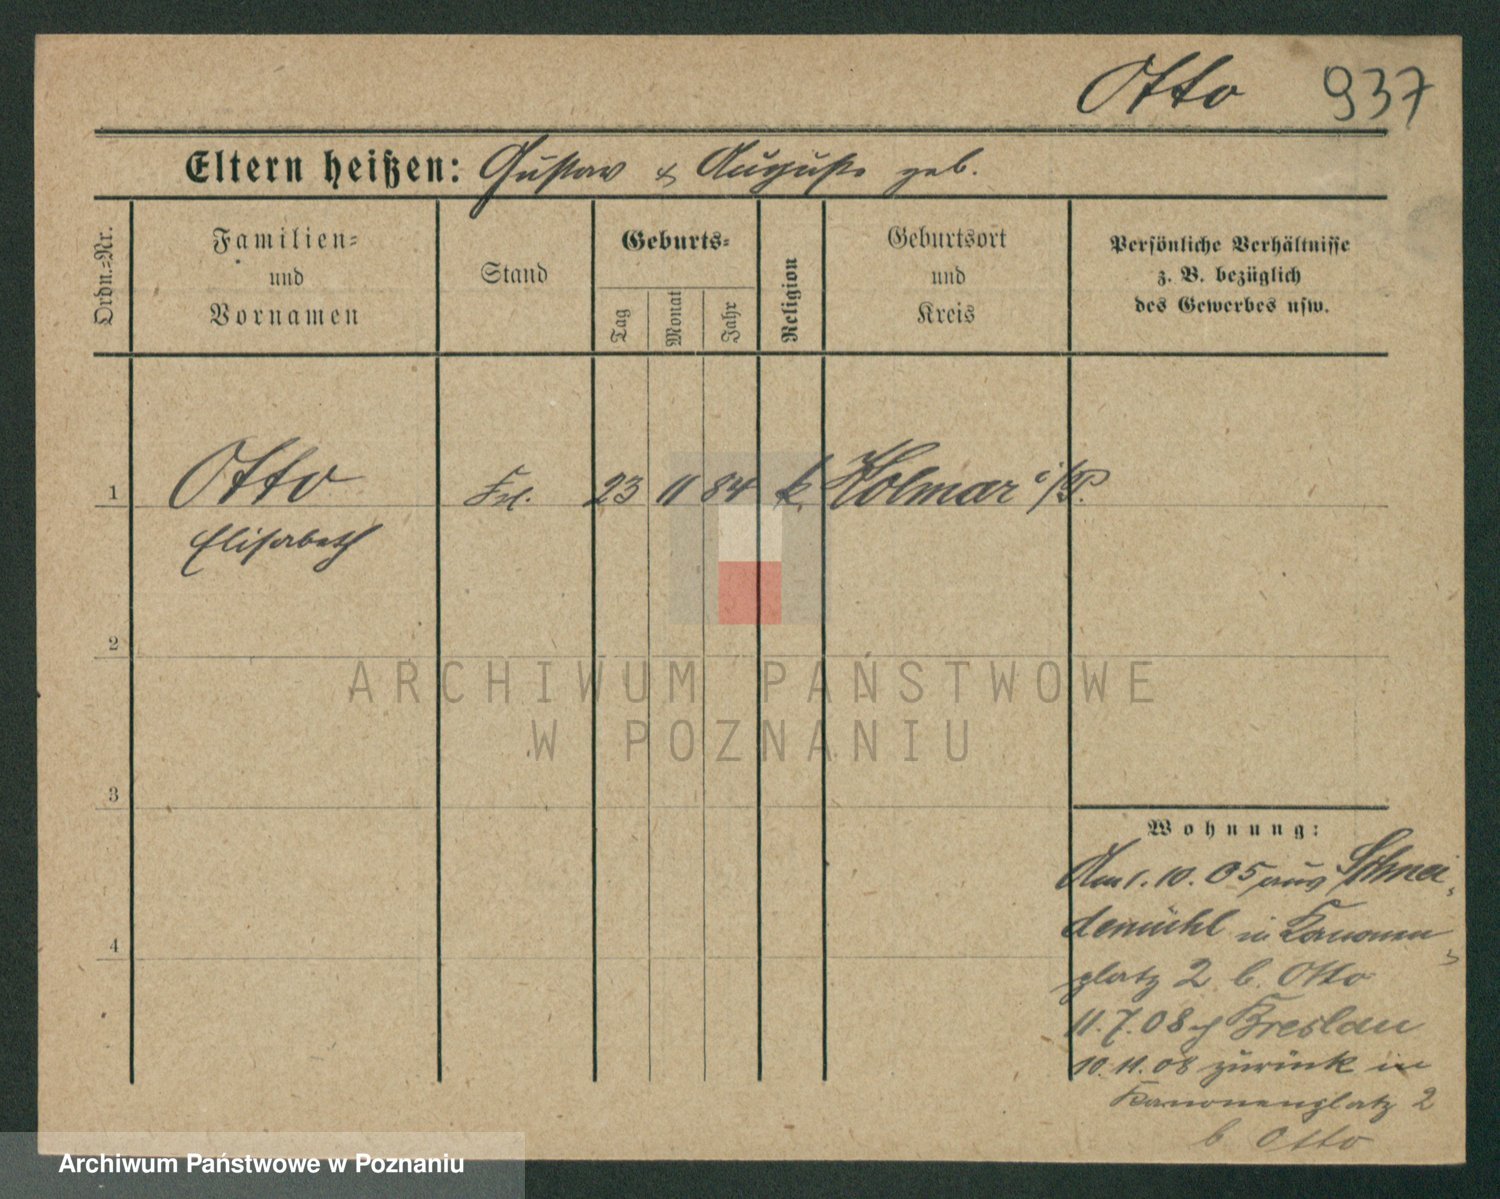 Otto 937
Eltern heißen: Gustav & Auguste geb.
Ordn.-Nr.
Familien-
und
Vornamen
Stand
Geburts-
Tag
Monat
Jahr
Religion
Geburtsort
und
Kreis
Persönliche Verhältnisse
z. B. bezüglich
des Gewerbes usw.
1 Otto Frl. 23 11 84 k. Kolmar i/P.
Elisabeth
2
3
4
Wohnung:
Am 1. 10. 05 aus Schnei-
demühl in Kanonen-
platz 2 b. Otto
11.7.08 Breslau
10.11.08 zurück in
Kanonenplatz 2
b Otto
ARCHIWUM PAŃSTWOWE
W POZNANIU
Archiwum Państwowe w Poznaniu